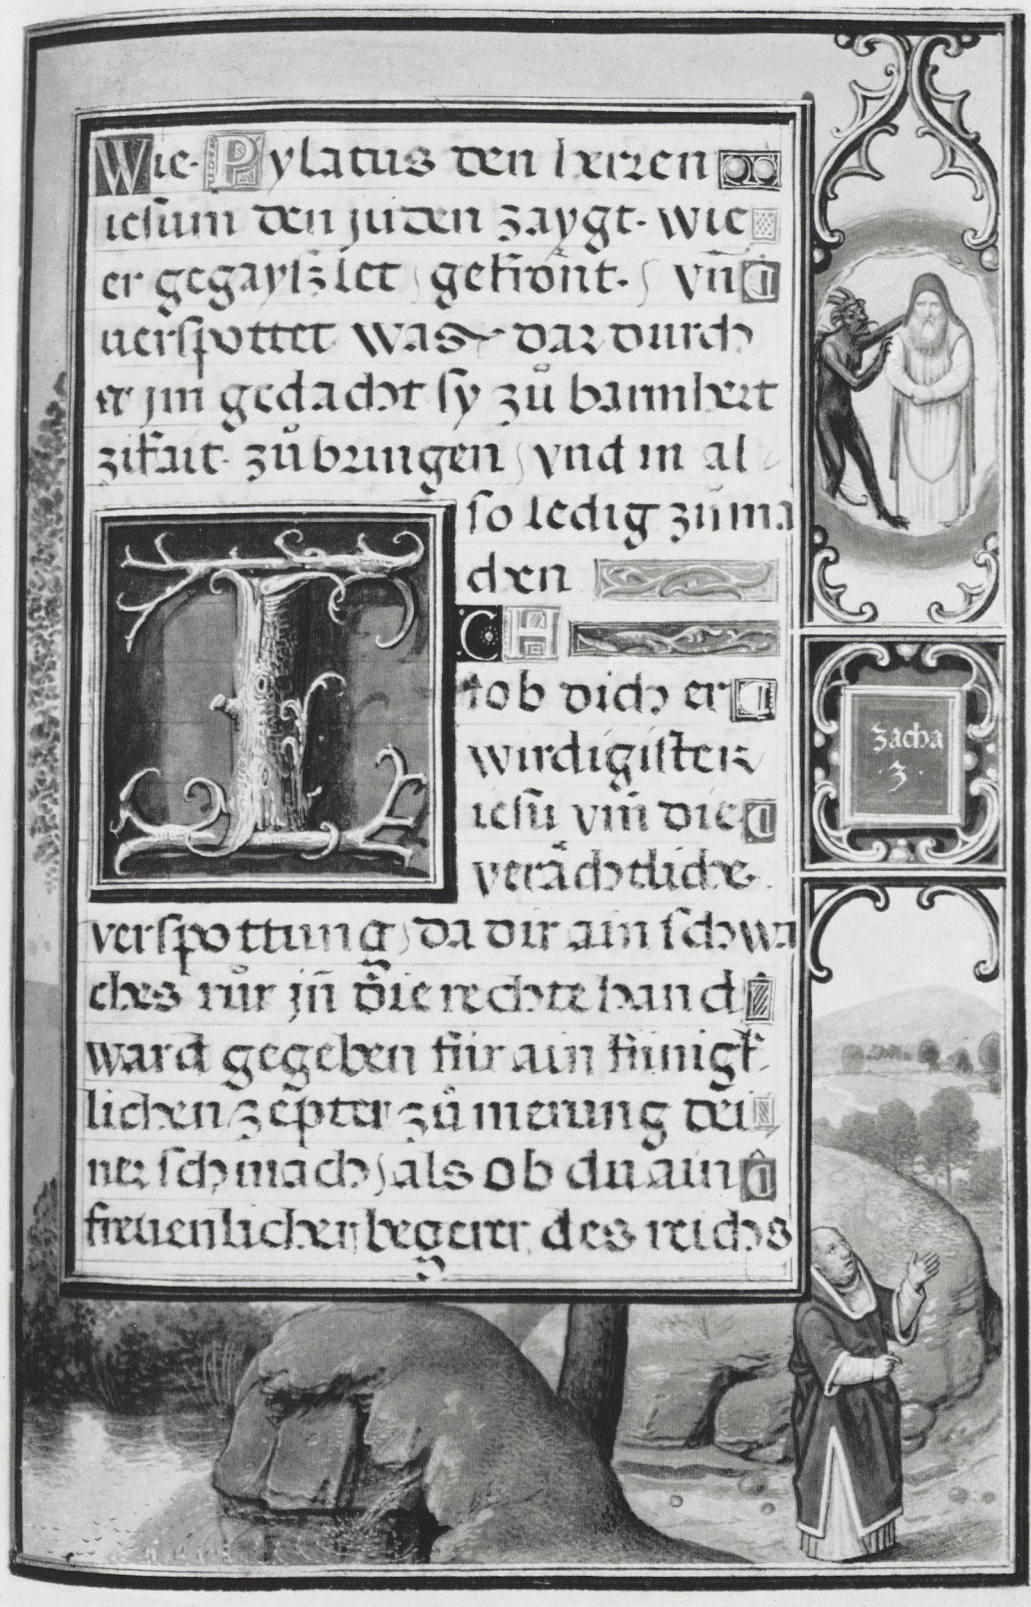 Wie· Pylatus den herren
iesum den juden zaygt· wie
er gegayszlet gekrönt· vn̄
uerspottet was dar durch
er jm gedacht sy zů barmhert
zikait· zůbringen vnd in al
so ledig zůma
chen
ICH
lob dich er
wirdigister
iesu vn̄ die
verächtliche
verspottung da dir ain schwa
ches růr jn̄ die rechte hand
ward gegeben für ain künigk
lichen zepter zů merung dei
ner schmach als ob du ain
freuenlicher begerer des reichs
zacha
·3·